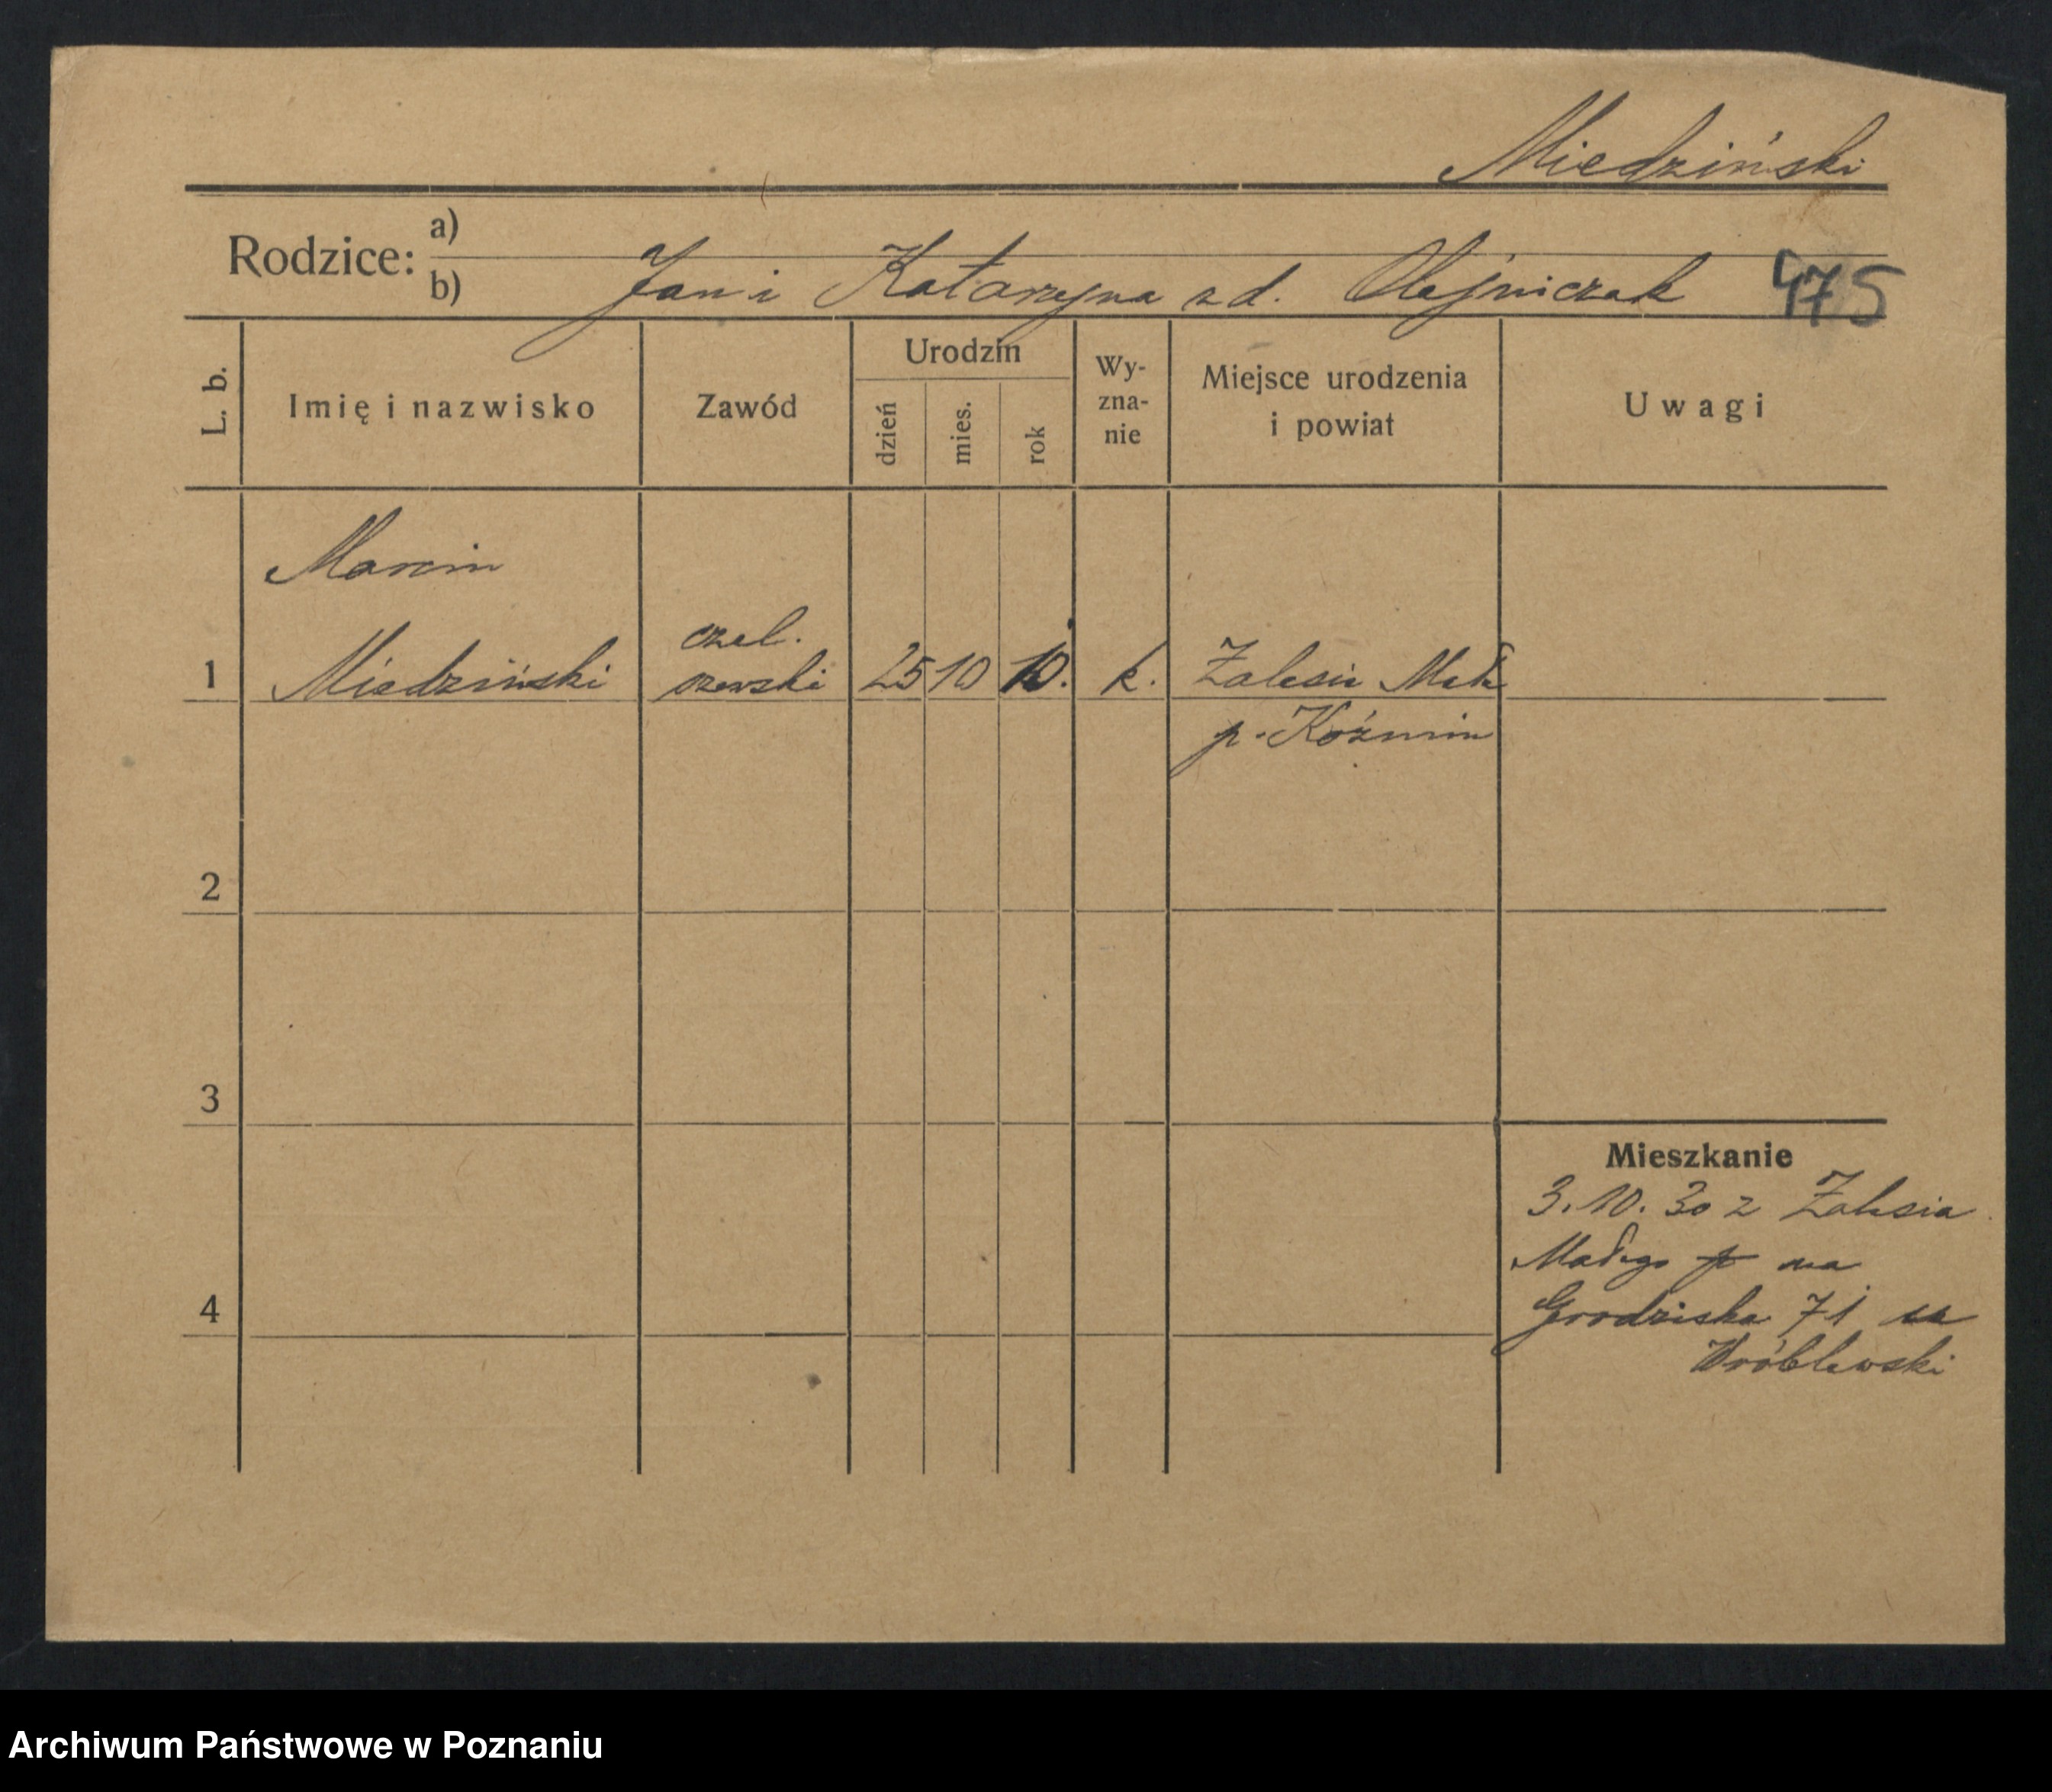 Miedziński
Rodzice: a)
b) Jan i Katarzyna z d. Olejniczak 475
L. b. Imię i nazwisko Zawód Urodzin dzień mies. rok Wy-
zna-
nie Miejsce urodzenia
i powiat Uwagi
Marcin
czel.
1 Miedziński szewski 25 10 10. k. Zalesie Małe
p. Koźmin
2
3
Mieszkanie
3. 10. 30 z Zalesia
Małego na
4 Grodziska 71
Wróblewski
Archiwum Państwowe w Poznaniu